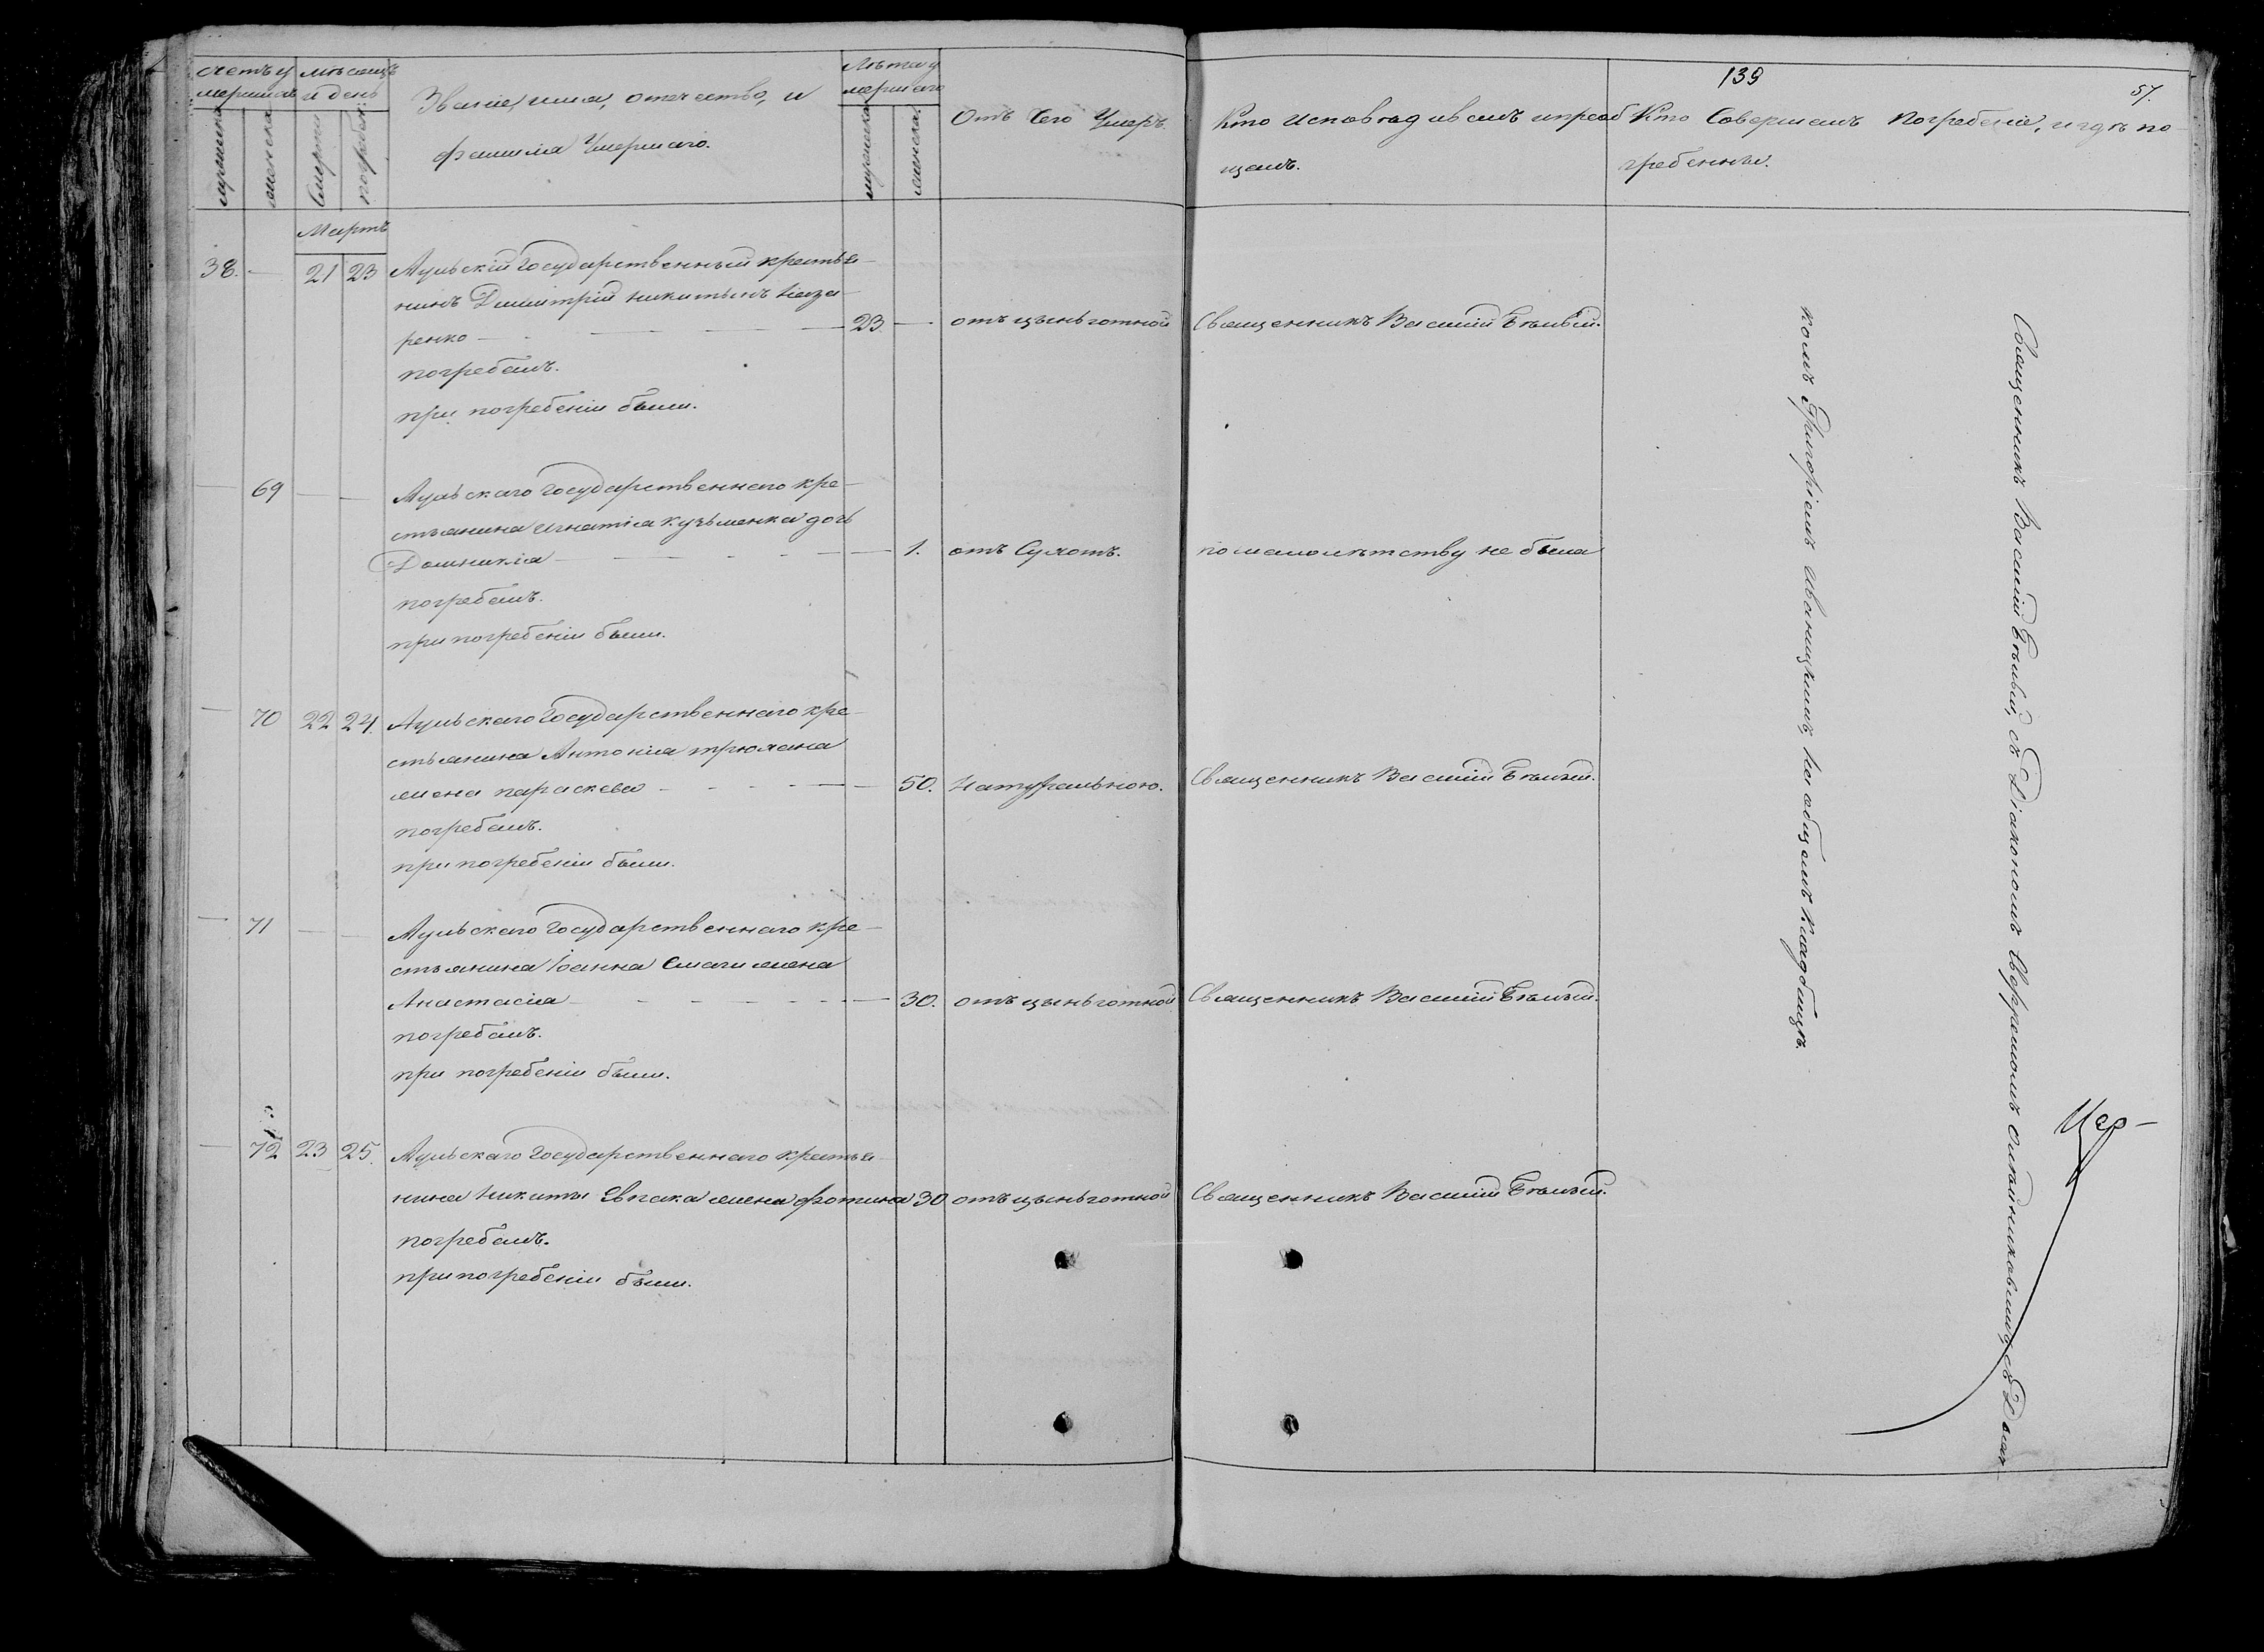 139
57.
счетъ у
мершихъ
мѣсяцъ
и день
Званіе, имя, отечество, и
фамилія Умершаго.
Лѣта у
мершаго
Отъ Чего Умеръ.
Кто Исповѣдывалъ и пріоб
щалъ.
Кто Совершалъ Погребеніе, и гдѣ по-
гребенны.
мужеска
женска
Смерти
погребен:
мужеска
женска
Мартъ
38. — 21 23 Аульскій Государственный крестья-
нинъ Димитрій Никитинъ Наза-
ренко — 23 — отъ цынготной Священникъ Василій Бѣлый.
погребалъ.
при погребеніи были.
— 69 — — Аульскаго Государственнаго кре-
стьянина Игнатія Кузьменка дочь
Домникія — — 1. отъ Сухотъ. по малолѣтству не была
погребалъ.
при погребеніи были.
— 70 22 24. Аульскаго Государственнаго кре-
стьянина Антонія трюхана
жена параскева — — 50. Натуральною. Священникъ Василій Бѣлый.
погребалъ.
при погребеніи были.
— 71 — — Аульскаго Государственнаго кре-
стьянина Іоанна жена
Анастасія — — 30. отъ цынготной Священникъ Василій Бѣлый.
погребалъ.
при погребеніи были.
— 72 23 25. Аульскаго Государственнаго крестья-
нина Никиты Евпака жена фотина 30 отъ цынготной Священникъ Василій Бѣлый.
погребалъ.
при погребеніи были.
Священникъ Василій Бѣлый, съ Діакономъ съ Дьяч-
комъ Григоріемъ Иваницкимъ, На общемъ Кладбищѣ.